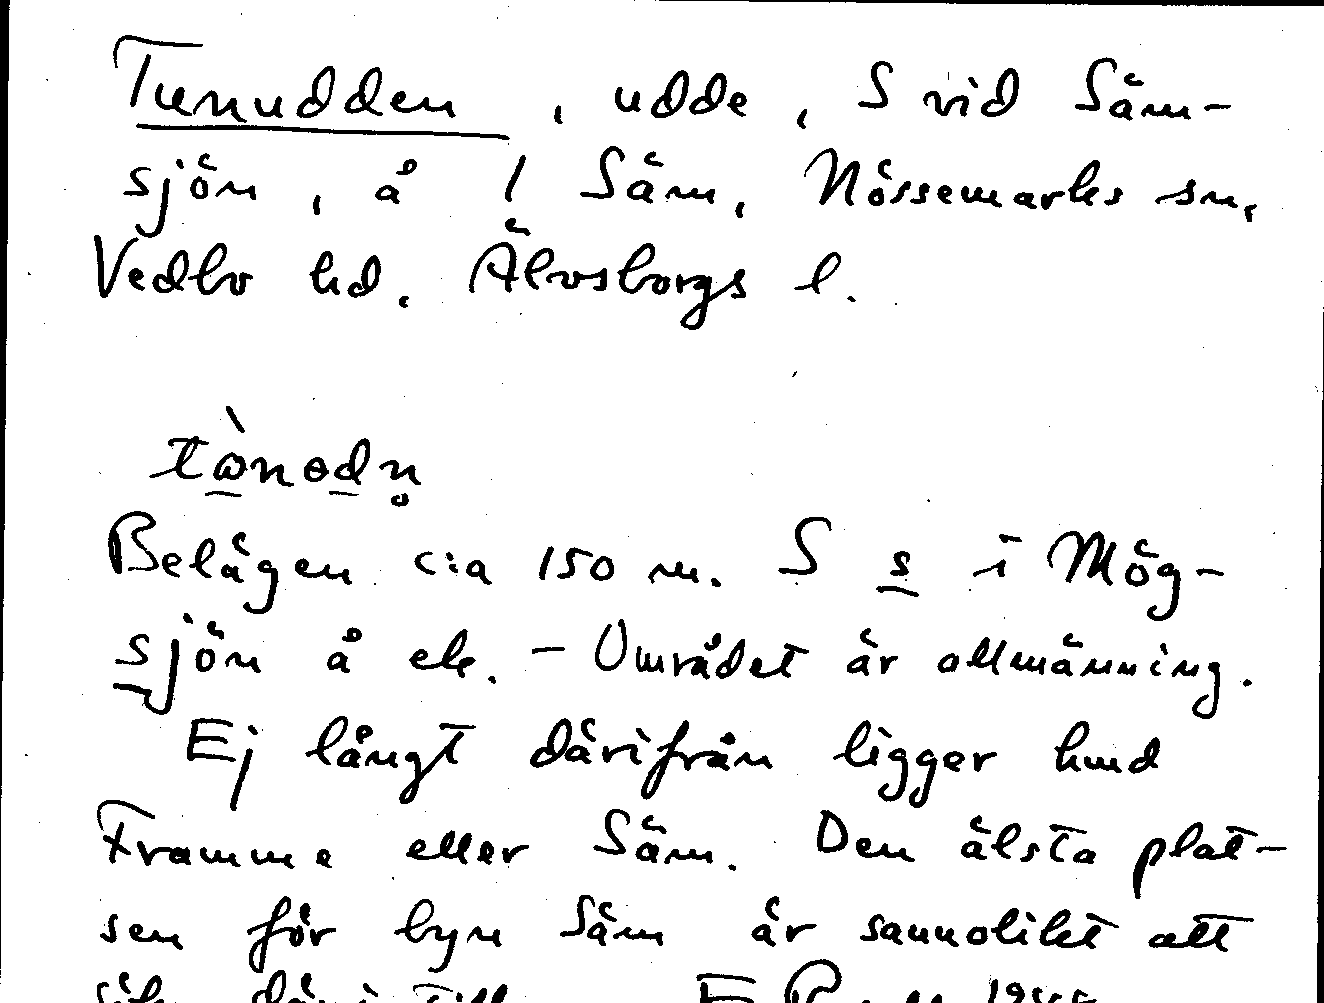 Tunudden, udde, S vid Säm-
sjön, å 1 Säm, Nössemarks sn,
Vedbo hd, Älvsborgs l.
Belägen c:a 150 m. S s i Mög-
sjön å ek. - Området är allmänning.
Ej långt därifrån ligger hmd
Framme eller Säm. Den älsta plat-
sen för byn Säm är sannolikt att